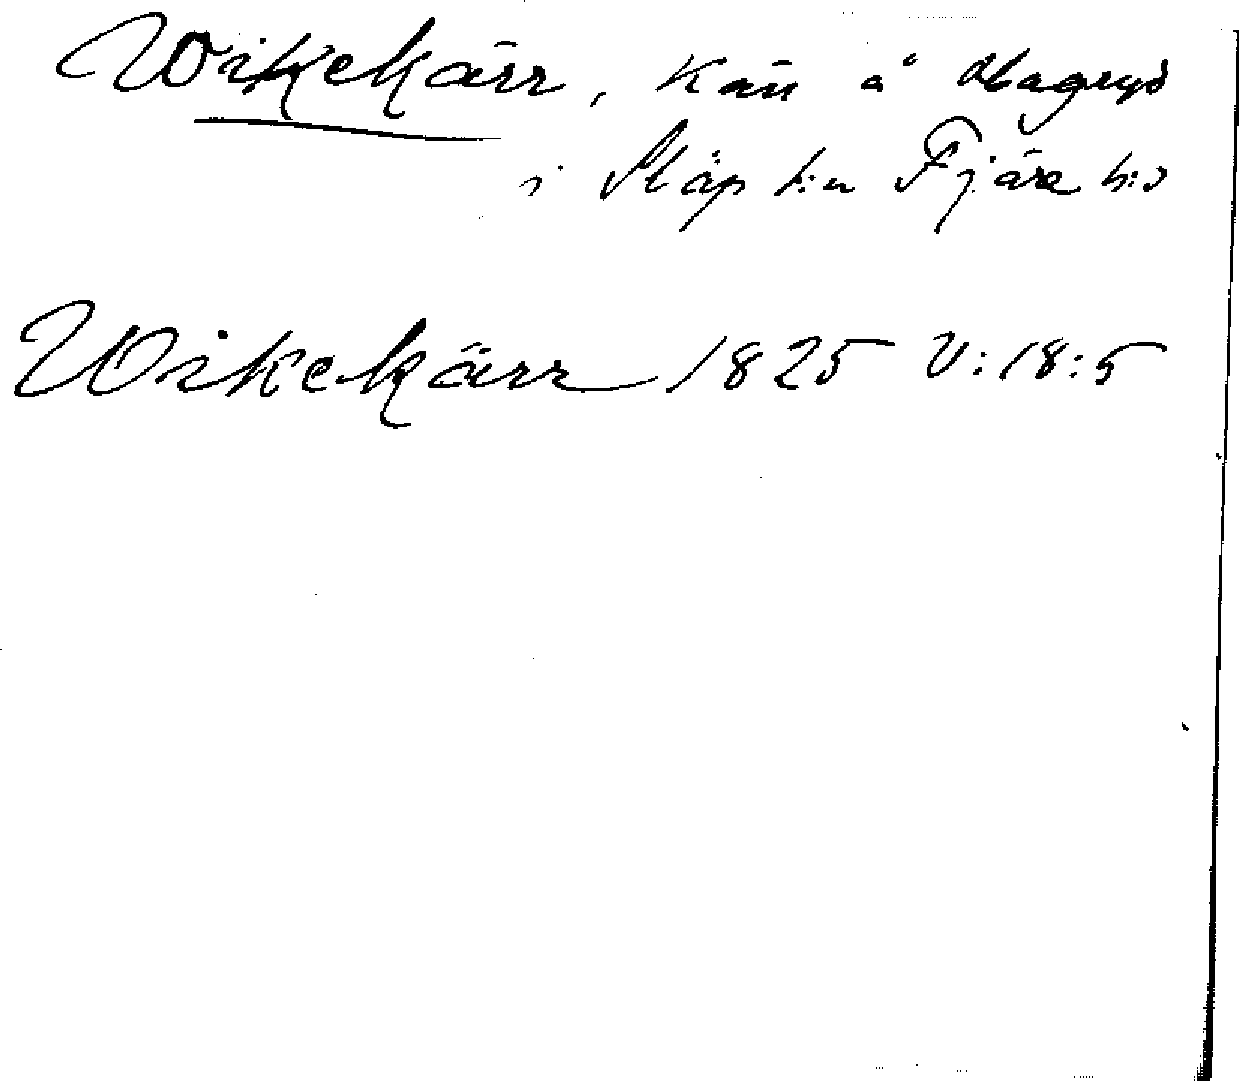 Wikekärr, Kärr å Hagryd
i Släp s:n Fjäre h:d
Wikekärr 1825 V:18:5